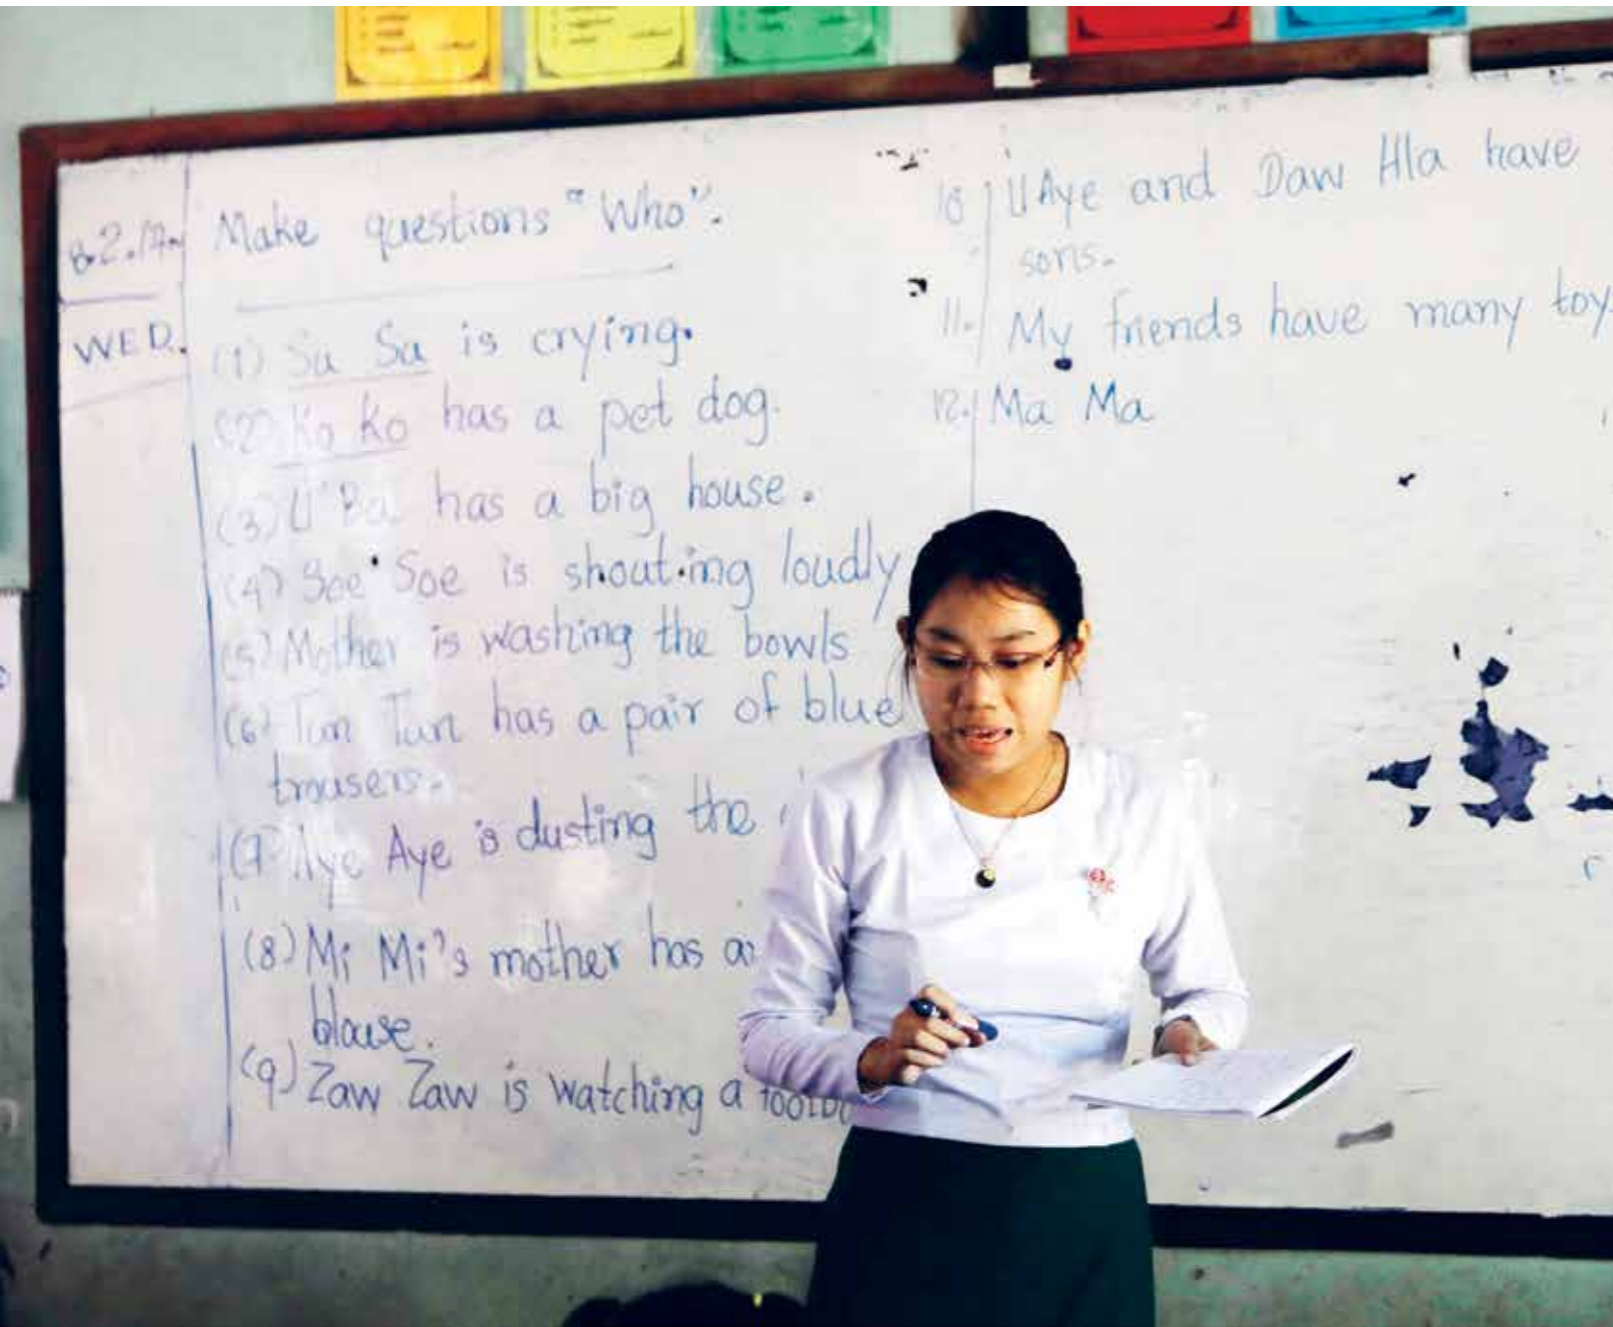 8.2.17.
WED.
Make questions "Who".
(1) Su Su is crying.
(2) Ko Ko has a pet dog.
(3) U Ba has a big house.
(4) Soe Soe is shouting loudly
(5) Mother is washing the bowls
(6) Tun Tun has a pair of blue
trousers.
(7) Aye Aye is dusting the
(8) Mi Mi's mother has a
blouse.
(9) Zaw Zaw is watching a footb
10 U Aye and Daw Hla have
sons.
11. My friends have many toy
12. Ma Ma